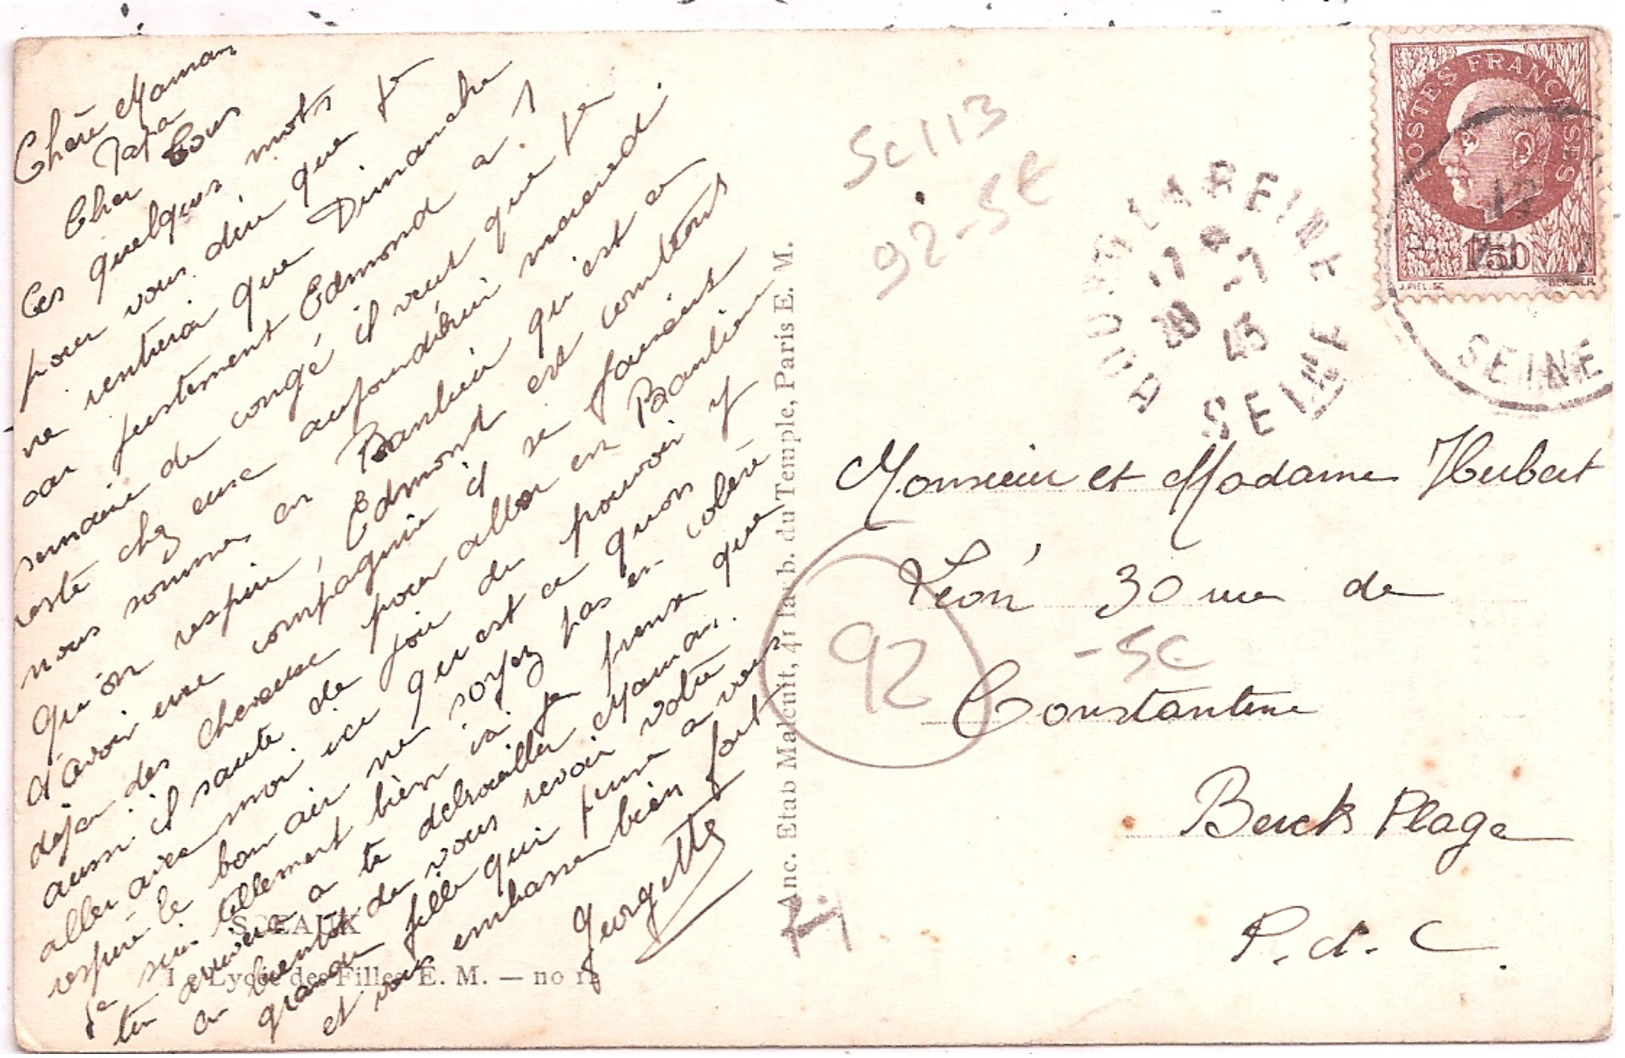 Chère Maman
Papa
Cher Tous
Ces quelques mots
pour vous dire que je
ne rentrerai que Dimanche
car justement Edmond a 1
semaine de congé il veut que je
reste chez eux aujourd'hui mercredi.
nous sommes en Banlieu qu'est ce
qu'on respire, Edmond est contens
d'avoir une compagnie il se faisait
déja des cheveux pour aller en Banlieu
aussi il saute de joie de pouvoir y
aller avec moi ici qu'est ce quon
respire le bon air ne soyez pas en colère
je suis tellement bien ici je pense que
ten arrivera a te debrouiller Maman.
a bientot de vous revoir votre
grande fille qui pense a vous
et vous embrasse bien fort
Georgette
SCEAUX
Lycée des Filles E. M. — no
Anc. Etab Malcuit, 41 faub. du Temple, Paris E. M.
Sc113
92-SC
BOURG LA REINE
17
28 -7
43
SEINE
POSTES FRANÇAISES
1F50
J.PIEL.SC
BERSIER
17
SEINE
Monsieur et Madame Hubert
Léon 30 rue de
92
-SC
Constantine
Berck Plage
P. d. C.